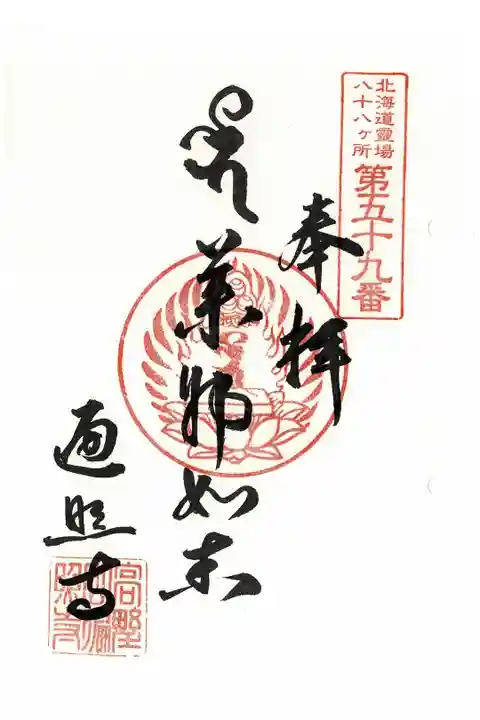 北海道霊場
八十八ヶ所
第五十九番
奉拝
薬師如来
遍照寺